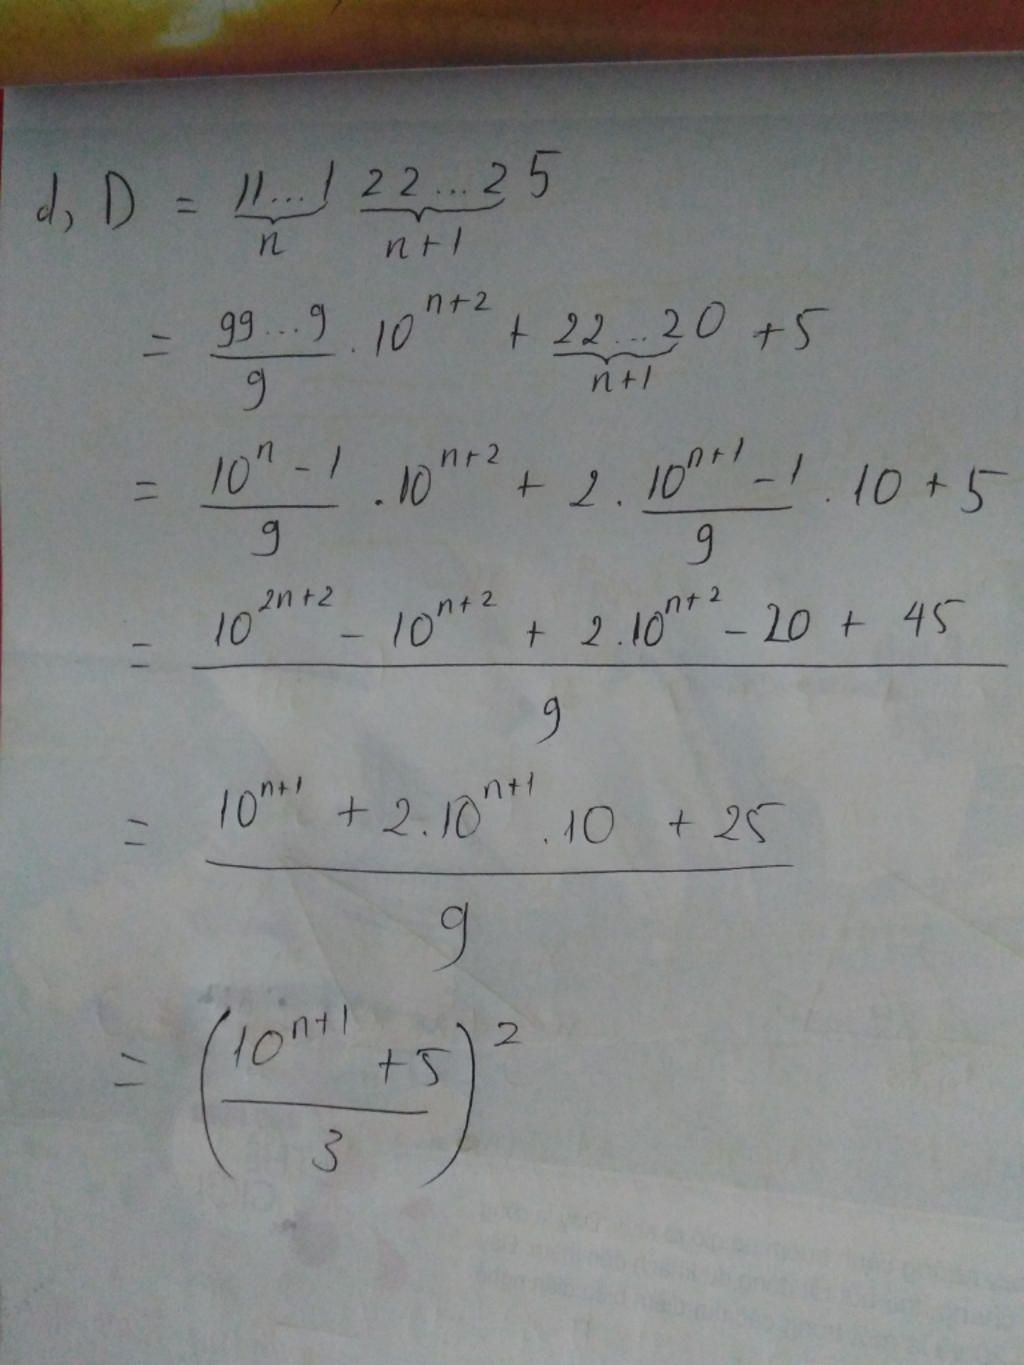 d, D = 11...1 22...2 5
n n+1
= 99...9/9 . 10^{n+2} + 22...20 + 5
n+1
= (10^n - 1)/9 . 10^{n+2} + 2 . (10^{n+1} - 1)/9 . 10 + 5
= (10^{2n+2} - 10^{n+2} + 2.10^{n+2} - 20 + 45)/9
= (10^{n+1} + 2.10^{n+1} . 10 + 25)/9
= ((10^{n+1} + 5)/3)^2